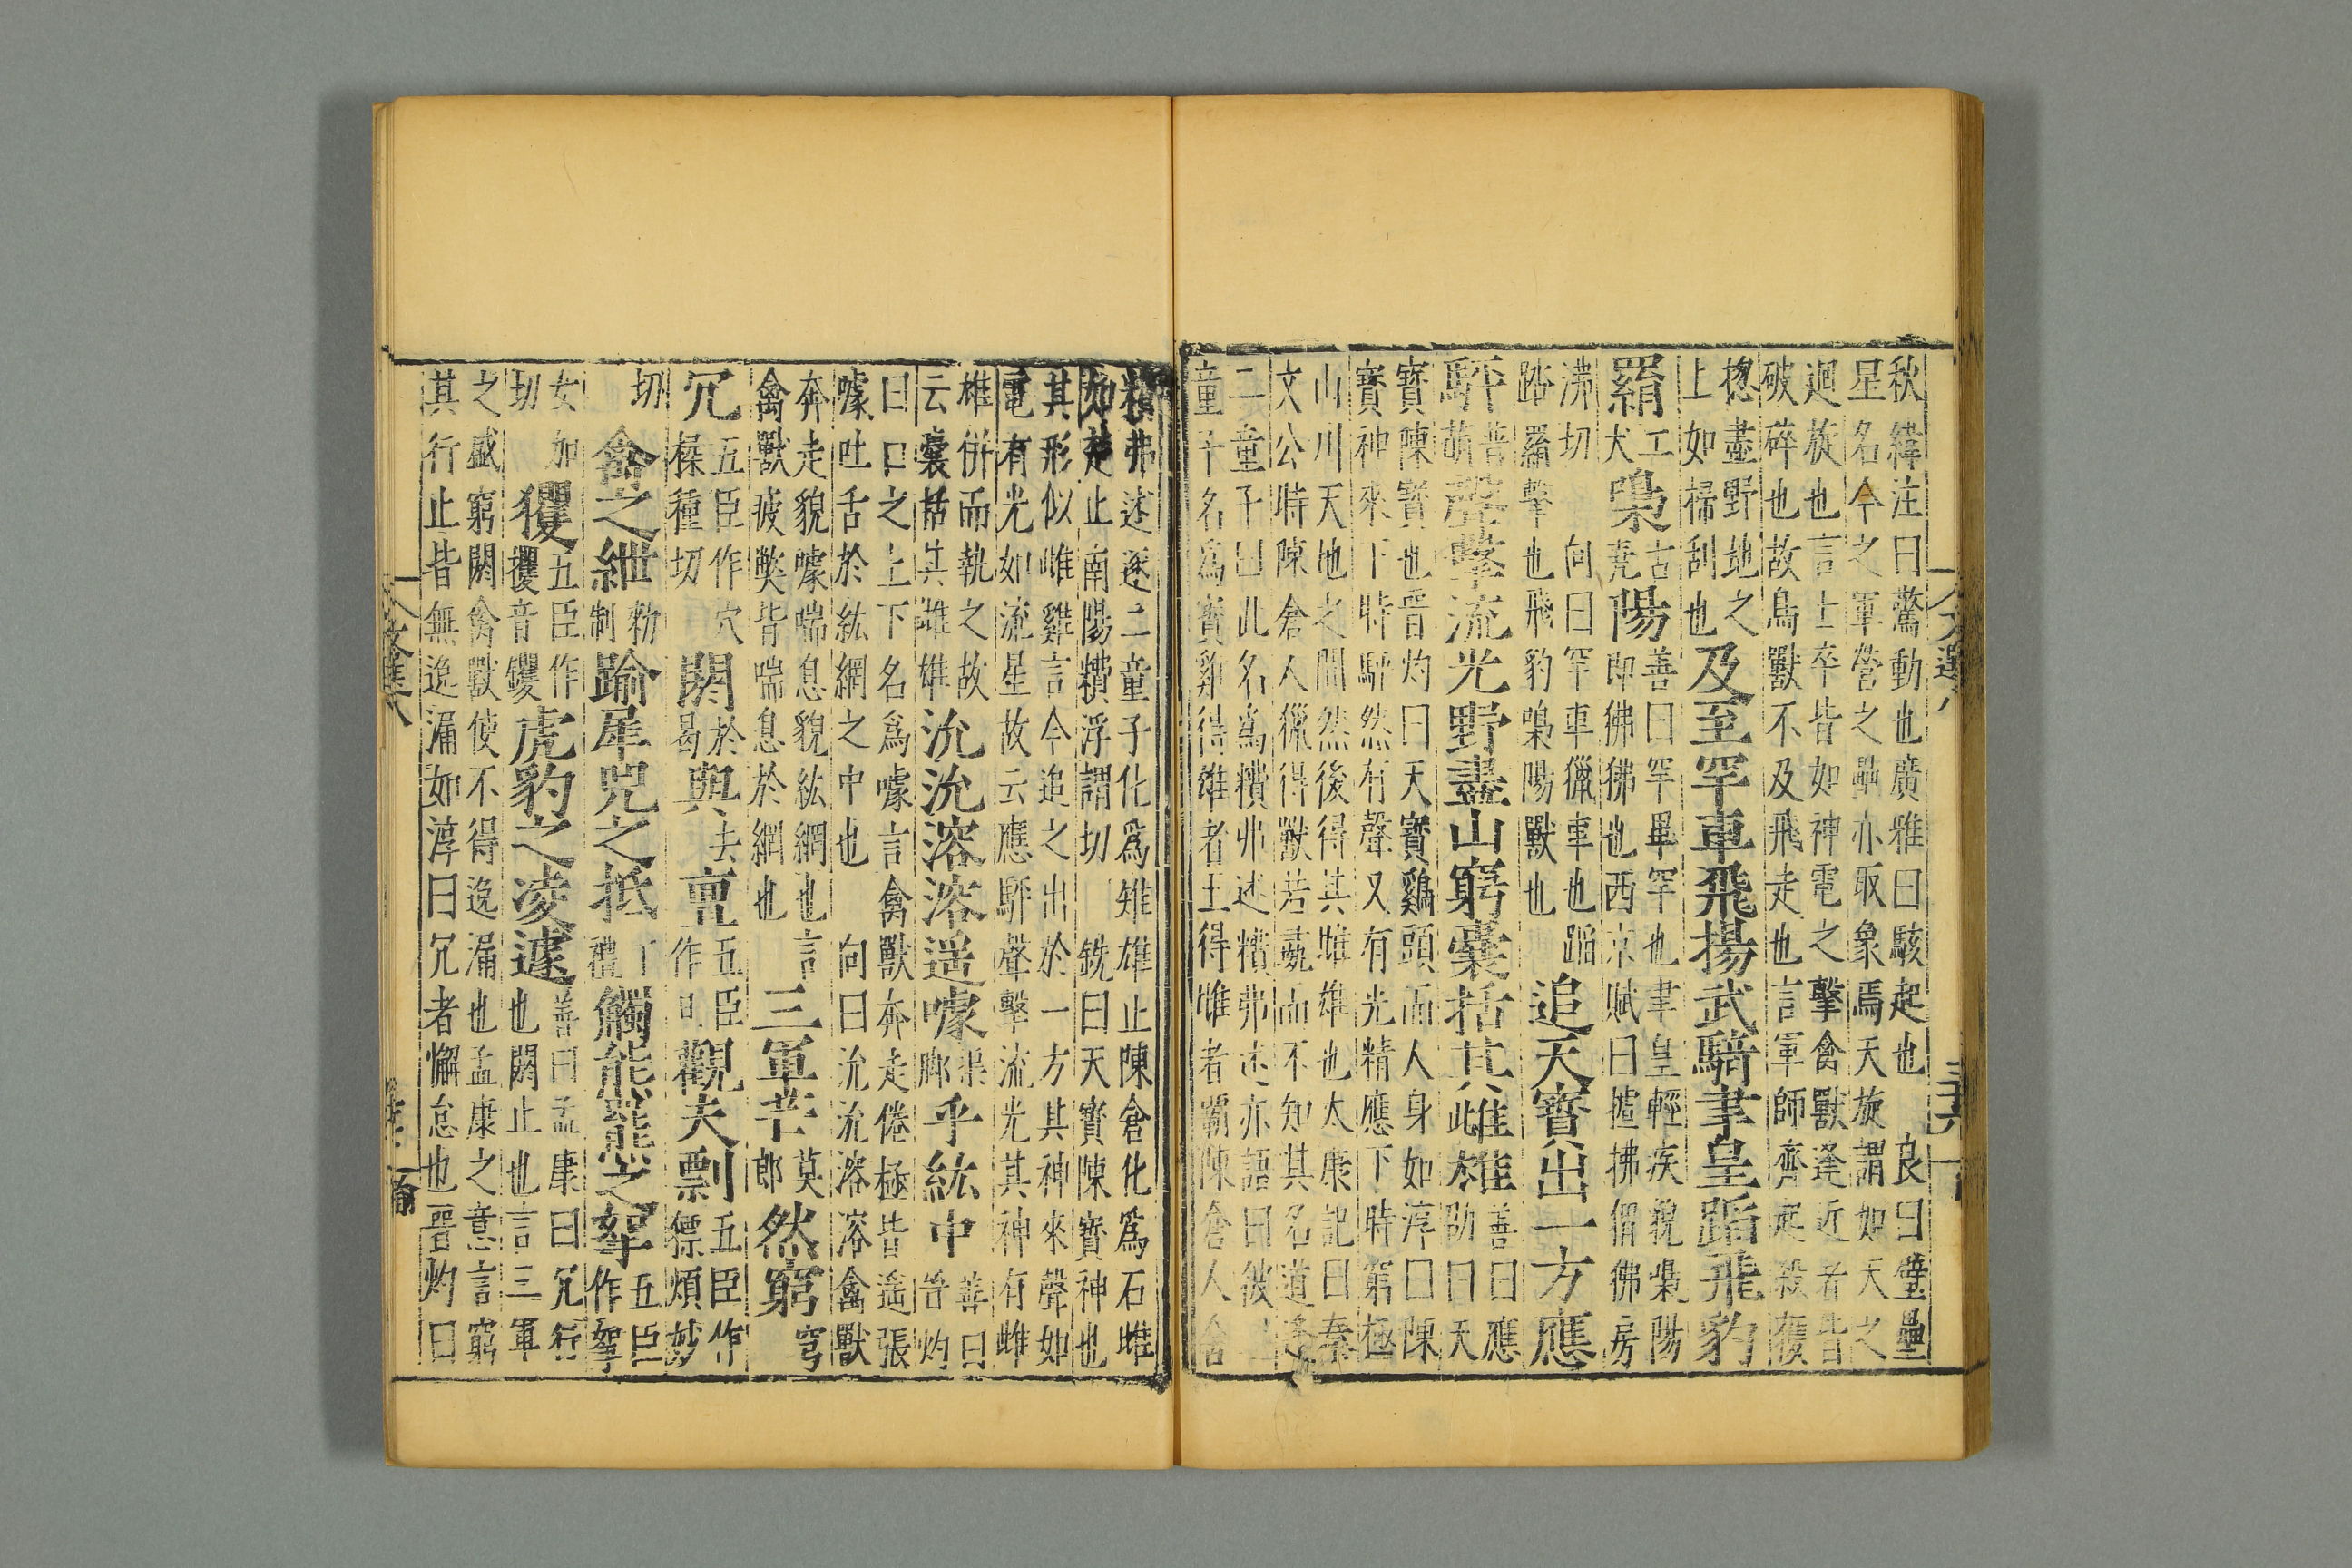 秋緯注曰驚動也廣雅曰駭起也　良曰壁壘
星名今之軍營之壘亦取象焉天旋謂如天之
迴旋也言士卒皆如神電之擊禽獸逢近者皆
破碎也故鳥獸不及飛走也言軍師齊起殺獲
揔盡野地之
上如掃刮也
及至罕車飛揚武騎聿皇蹈飛豹
羂
工犬
𣝕
古堯
陽
善曰罕畢罕也聿皇輕疾貌𣝕陽
即彿彿也西京賦曰揸拂猬彿房
沸切　向曰罕車獵車也蹈
踏羅擊也飛豹𣝕陽獸也
追天寳出一方應
駍
普萌
聲擊流光野盡山窮囊括其雌雄
善曰應劭曰天
寳陳寳也晋灼曰天寳鷄頭而人身如淳曰陳
寳神來下時駍然有聲又有光精應下時窮極
山川天地之間然後得其雌雄也太康記曰秦
文公時陳倉人獵得獸若彘而不知其名道逢
二童子曰此名爲糟弗述糟弗述亦語曰彼二
童子名爲寳雞得雄者王得雌者霸陳倉人舍
糟弗述逐二童子化爲雉雄止陳倉化爲石雌
如楚止南陽糟浮謂切　銑曰天寳陳寳神也
其形似雌雞言今追之出於一方其神來聲如
電有光如流星故云應駍聲擊流光其神有雌
雄併而執之故
云囊括其雌雄
沇沇溶溶遥噱
渠脚
乎紘中
善曰晋灼
曰口之上下名爲噱言禽獸奔走倦極皆遥張
噱吐舌於紘網之中也　向曰沇沇溶溶禽獸
奔走貌噱喘息貌紘網也言
禽獸疲弊皆喘息於網也
三軍芒
莫郎
然窮
穹
冗
五臣作穴
㯶種切
閼
於曷
與
去
亶
五臣作但
觀夫剽
五臣作獟頻妙
切
禽之紲
勑制
踰犀兕之抵
丁禮
觸熊羆之挐
五臣作挐
女加
切
玃
五臣作
攫音钁
虎豹之凌遽
善曰孟康曰冗行
也閼止也言三軍
之盛窮閼禽獸使不得逸漏也孟康之意言窮
其行止皆無逸漏如淳曰冗者懈怠也晋灼曰